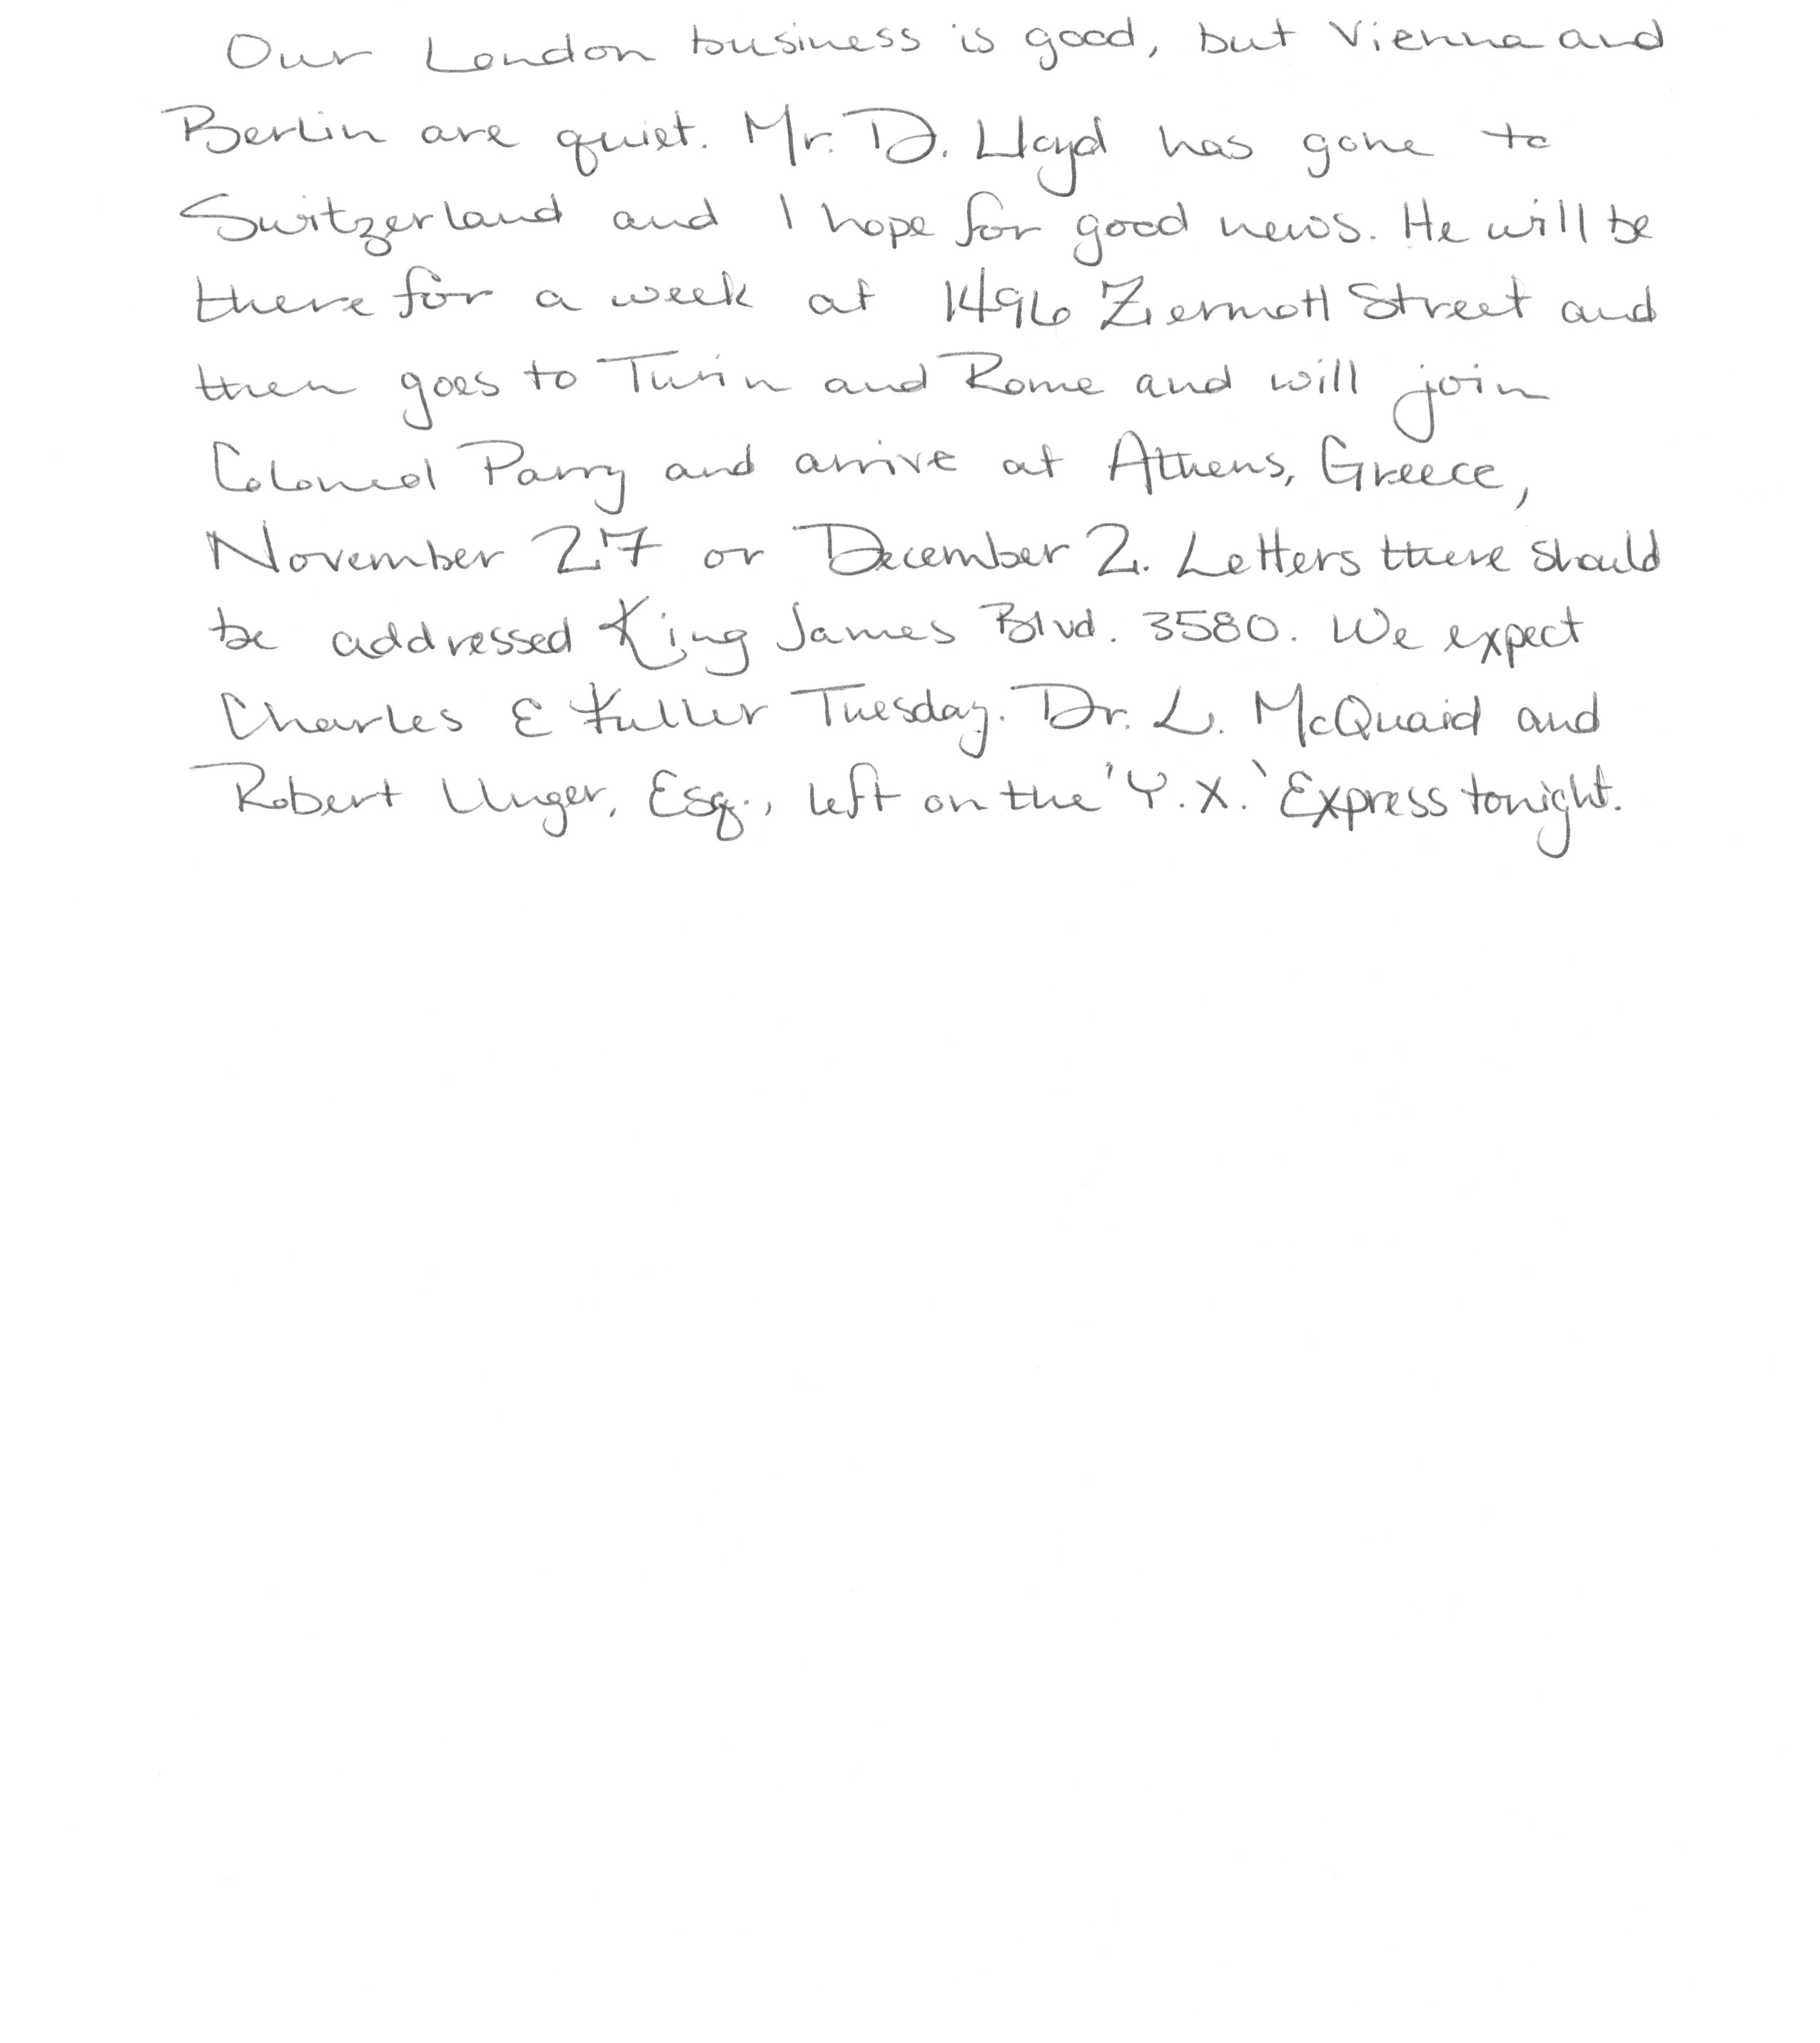 Our London business is good, but Vienna and
Berlin are quiet. Mr. D. Lloyd has gone to
Switzerland and I hope for good news. He will be
there for a week at 1496 Zermott Street and
then goes to Turin and Rome and will join
Colonel Parry and arrive at Athens, Greece,
November 27 or December 2. Letters there should
be addressed King James Blvd. 3580. We expect
Charles E Fuller Tuesday. Dr. L. McQuaid and
Robert Unger, Esq., left on the 'Y.X.' Express tonight.